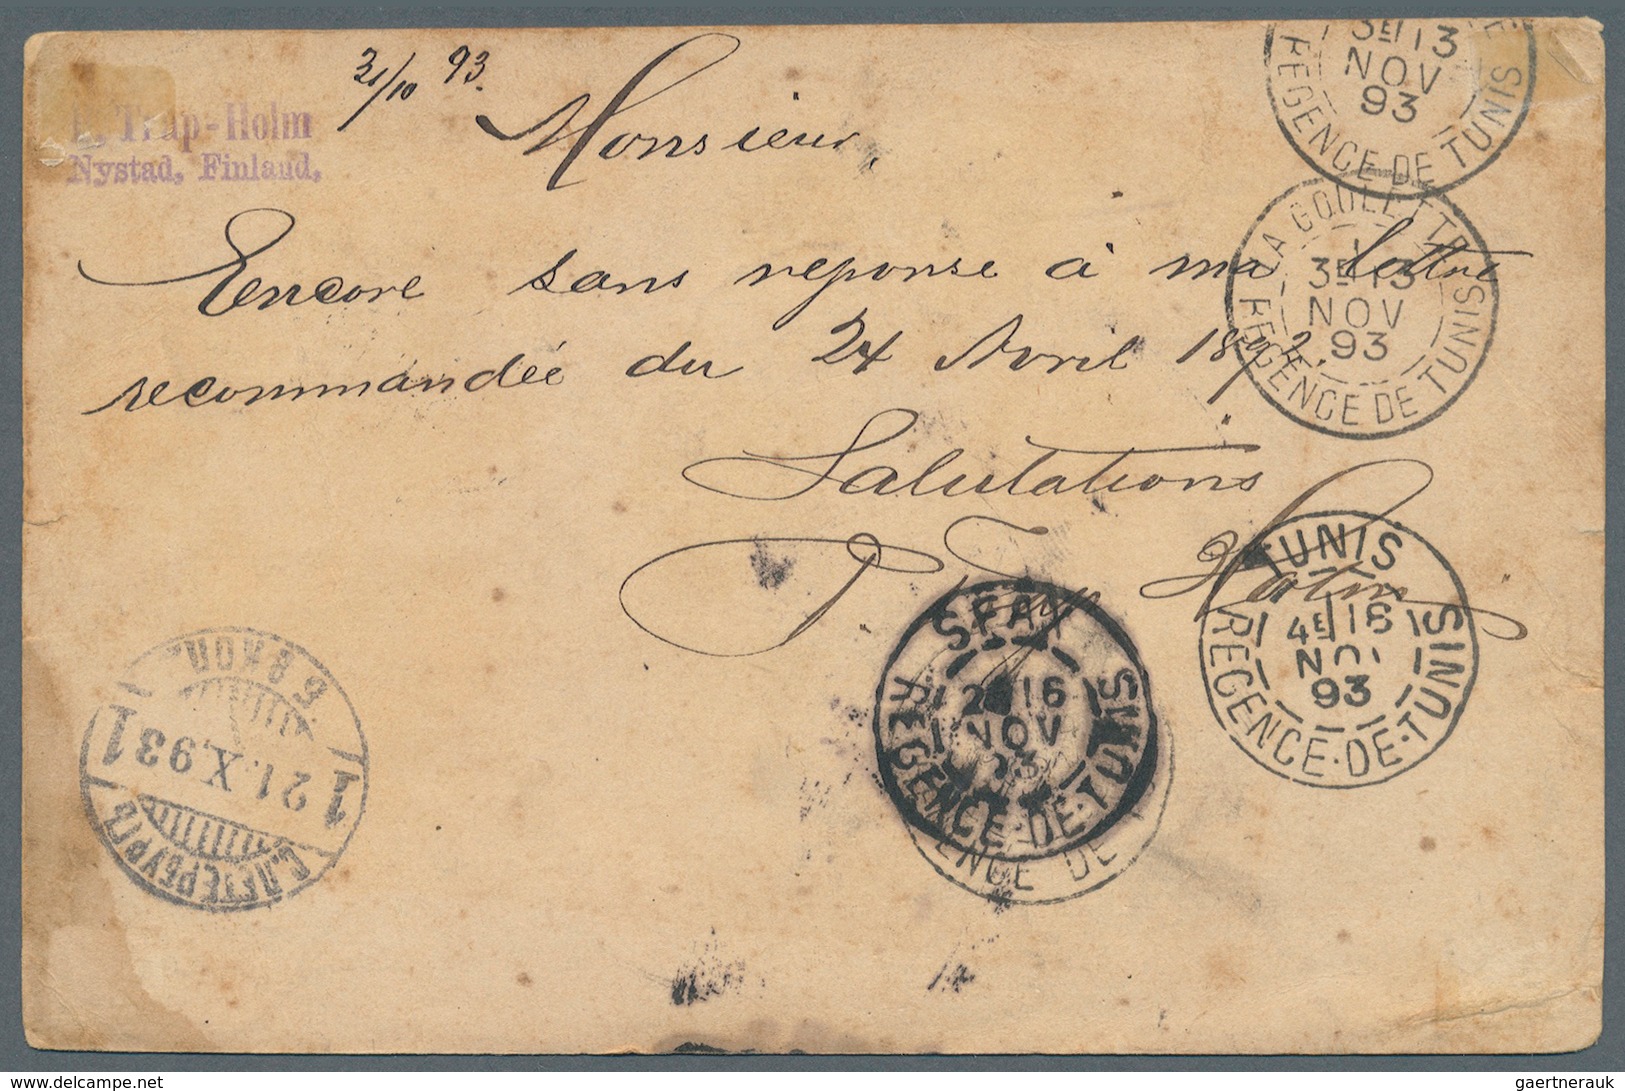 Trap-Holm
Nystad, Finland,
31/10 93.
Monsieur,
Encore sans reponse à ma lettre
recommandée du 24 Avril 1892.
Salutations
Trap Holm
3E 13
NOV
93
REGENCE DE TUNIS
LA GOULETTE
3E 13
NOV
93
REGENCE DE TUNIS
TUNIS
4E 16
NOV
93
REGENCE·DE·TUNIS
SFAX
16
NOV
93
REGENCE·DE·TUNIS
REGENCE DE
ВОКЗ.
1 21.X.93 1
С.ПЕТЕРБУРГЪ
delcampe.net
gaertnerauk